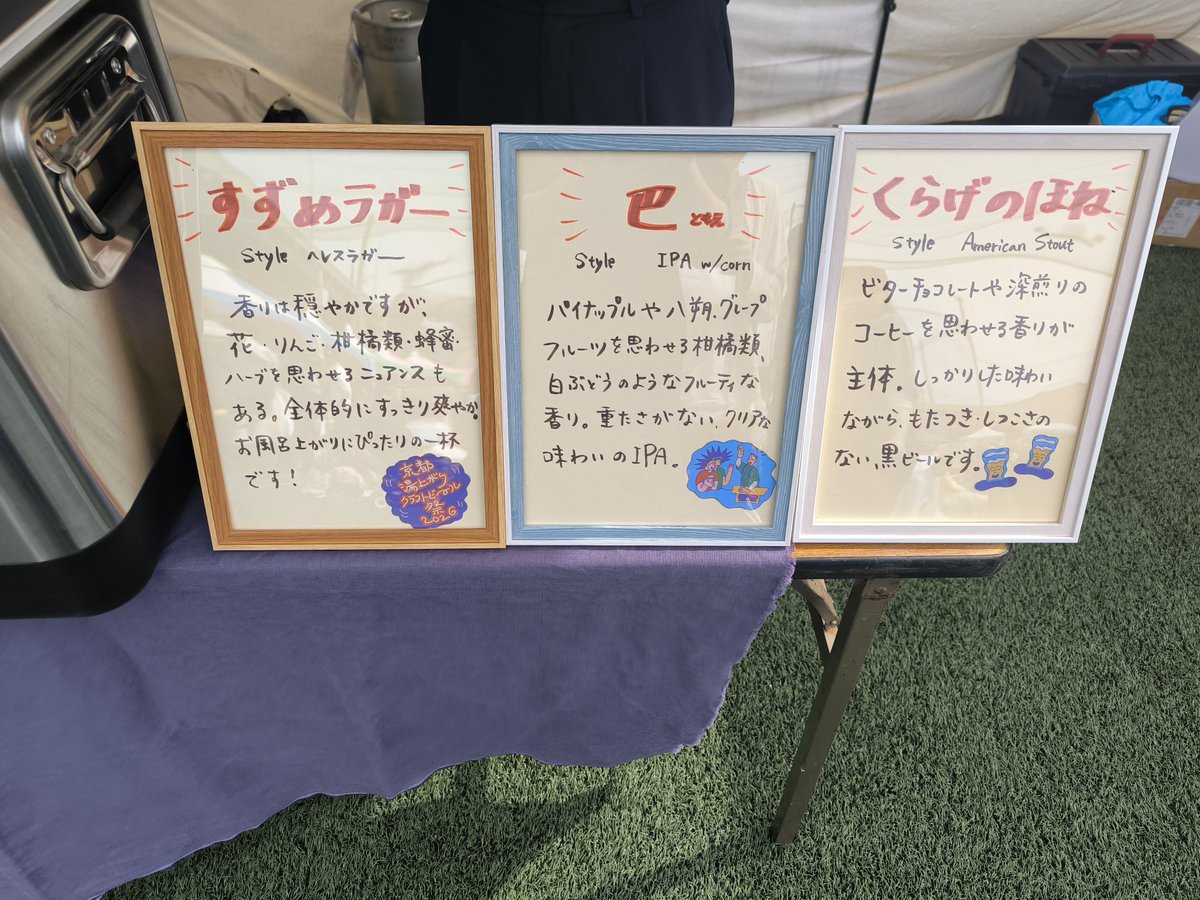 すずめラガー
Style ヘレスラガー
香りは穏やかですが、
花・りんご・柑橘類・蜂蜜・
ハーブを思わせるニュアンスも
ある。全体的にすっきり爽やか。
お風呂上がりにぴったりの一杯
です！
京都
湯上がり
クラフトビール
祭
2026
巴 ともえ
Style IPA w/corn
パイナップルや八朔、グレープ
フルーツを思わせる柑橘類、
白ぶどうのようなフルーティな
香り。重たさがない、クリアな
味わいのIPA。
くらげのほね
Style American Stout
ビターチョコレートや深煎りの
コーヒーを思わせる香りが
主体。しっかりした味わい
ながら、もたつき・しつこさの
ない、黒ビールです。